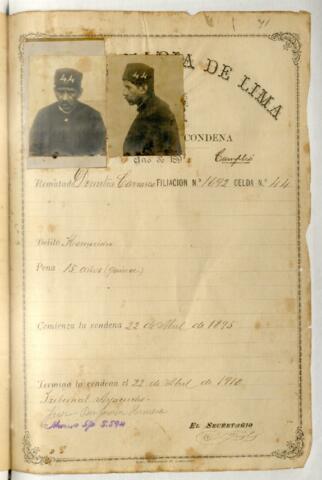 71
44
44
ARIA DE LIMA
CONDENA
Año de 18
Cumplió
Rematado Carmen FILIACION N.º 1692 CELDA N.º 44
Delito Homicidio
Pena 15 años (quince)
Comienza la condena 22 de Abril de 1895
Termina la condena el 22 de Abril de 1910
Tribunal Ayacucho
Juez Benjamín
5.594
EL SECRETARIO